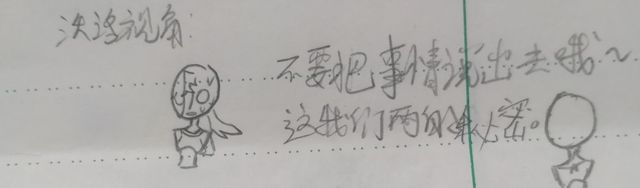 视角:
不要把事情说出去哦~
这我们两的秘密。